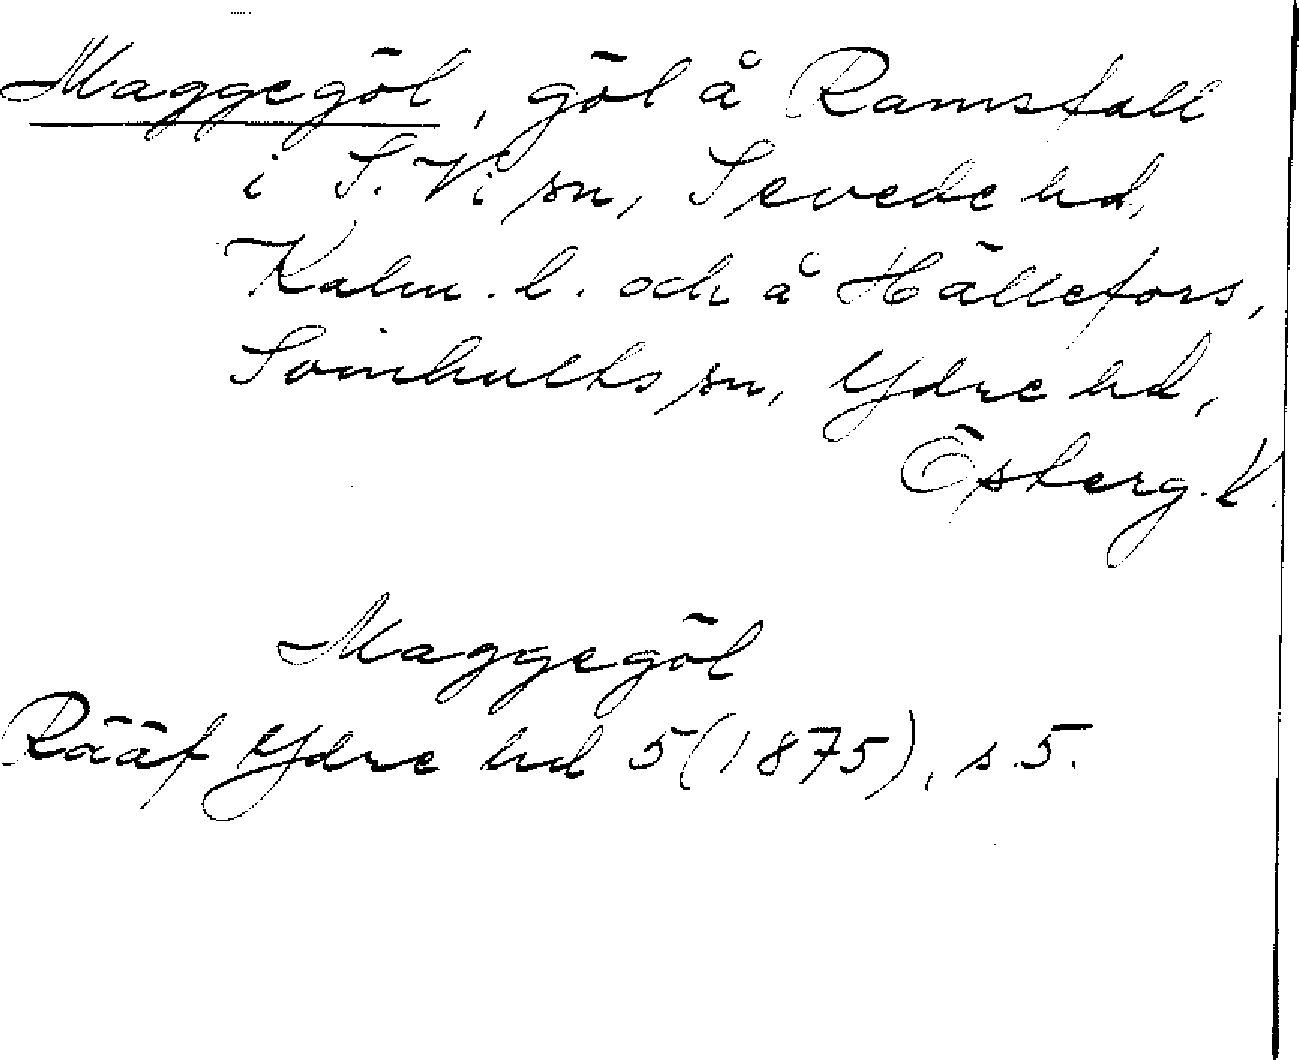 Maggegöl, göl å Ramsfall
i S. Vi sn, Sevede hd,
Kalm. l. och å Hällefors,
Svinhults sn, Ydre hd,
Österg. l.
Maggegöl
Rääf Ydre hd 5(1875), s. 5.